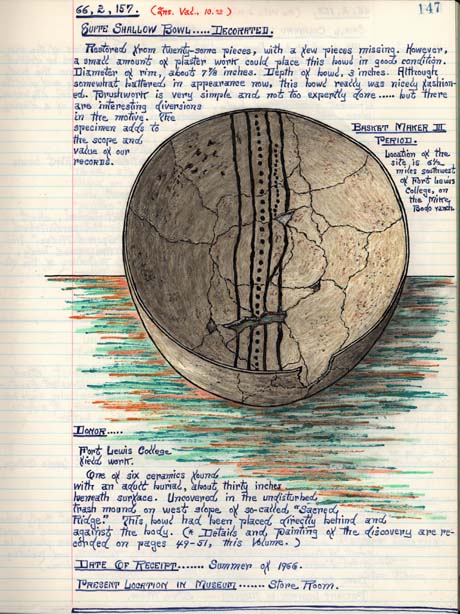 66, 2, 157. (Ins. Val., 10.00) 147
Quite Shallow Bowl..... Decorated.
Restored from twenty-some pieces, with a few pieces missing. However,
a small amount of plaster work could place this bowl in good condition.
Diameter of rim, about 7⅞ inches. Depth of bowl, 3 inches. Although
somewhat battered in appearance now, this bowl really was nicely fashion-
ed. Brushwork is very simple and not too expertly done..... but there
are interesting diversions
in the motive. The
specimen adds to
the scope and
value of our
records.
Basket Maker III
Period.
Location of the
site, is 6½
miles southwest
of Fort Lewis
College, on
the "Mike
Bodo ranch.
Donor.....
Fort Lewis College
field work.
One of six ceramics found
with an adult burial, about thirty inches
beneath surface. Uncovered in the undisturbed
trash mound on west slope of so-called "Sacred
Ridge." This bowl had been placed directly behind and
against the body. (* Details and painting of the discovery are re-
corded on pages 49-51, this Volume.)
Date of Receipt....... Summer of 1966.
Present Location in Museum....... Store Room.